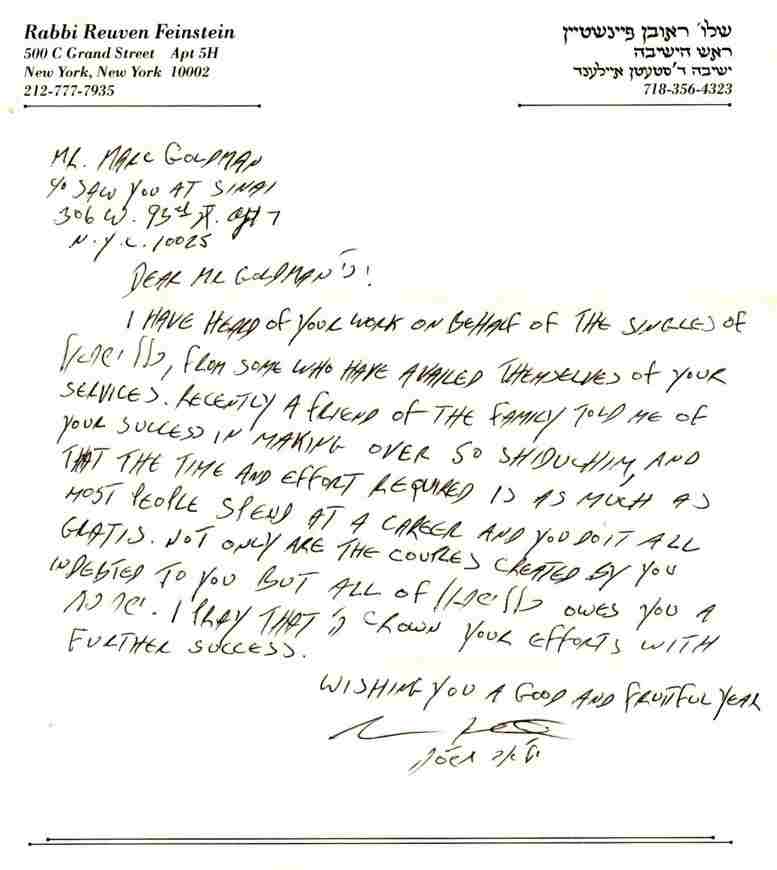 Rabbi Reuven Feinstein
500 C Grand Street Apt 5H
New York, New York 10002
212-777-7935
שלו' ראובן פיינשטיין
ראש הישיבה
ישיבה ד'סטעטן איילענד
718-356-4323
MR. MARC GOLDMAN
c/o SAW YOU AT SINAI
306 W. 95th ST. apt 7
N.Y.C. 10025
DEAR MR GOLDMAN נ"י!
I HAVE HEARD of YOUR WORK ON BEHALF OF THE SINGLES of
כלל ישראל, FROM SOME WHO HAVE AVAILED THEMSELVES of YOUR
SERVICES. RECENTLY A FRIEND OF THE FAMILY TOLD ME OF
YOUR SUCCESS IN MAKING OVER 50 SHIDUCHIM, AND
THAT THE TIME AND EFFORT REQUIRED IS AS MUCH AS
MOST PEOPLE SPEND AT A CAREER AND YOU DO IT ALL
GRATIS. NOT ONLY ARE THE COUPLES CREATED BY YOU
INDEBTED TO YOU BUT ALL OF כלל ישראל OWES YOU A
I PRAY THAT ה' CROWN YOUR EFFORTS WITH
FURTHER SUCCESS.
WISHING YOU A GOOD AND FRUITFUL YEAR